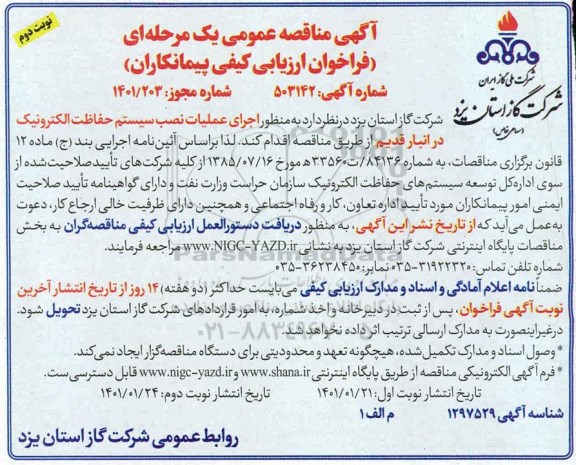 نوبت دوم
آگهی مناقصه عمومی یک مرحله‌ای
(فراخوان ارزیابی کیفی پیمانکاران)
شماره آگهی: ۵۰۳۱۴۲ شماره مجوز: ۱۴۰۱/۲۰۳
شرکت ملی گاز ایران
شرکت گاز استان یزد
(سهامی خاص)
شرکت گاز استان یزد در نظر دارد به منظور اجرای عملیات نصب سیستم حفاظت الکترونیک
در انبار قدیم از طریق مناقصه اقدام کند. لذا براساس آئین‌نامه اجرایی بند (ج) ماده ۱۲
قانون برگزاری مناقصات، به شماره ۸۴۱۳۶/ت۳۳۵۶۰ه مورخ ۱۳۸۵/۰۷/۱۶ از کلیه شرکت‌های تأیید صلاحیت شده از
سوی اداره کل توسعه سیستم‌های حفاظت الکترونیک سازمان حراست وزارت نفت و دارای گواهینامه تأیید صلاحیت
ایمنی امور پیمانکاران مورد تأیید اداره تعاون، کار و رفاه اجتماعی و همچنین دارای ظرفیت خالی ارجاع کار، دعوت
به عمل می‌آید که از تاریخ نشر این آگهی، به منظور دریافت دستورالعمل ارزیابی کیفی مناقصه‌گران به بخش
مناقصات پایگاه اینترنتی شرکت گاز استان یزد به نشانی www.NIGC-YAZD.ir مراجعه فرمایند.
شماره تلفن تماس: ۳۱۹۲۲۳۲۰-۰۳۵ نمابر: ۳۶۲۳۸۴۵۰-۰۳۵
ضمناً نامه اعلام آمادگی و اسناد و مدارک ارزیابی کیفی می‌بایست حداکثر (دو هفته) ۱۴ روز از تاریخ انتشار آخرین
نوبت آگهی فراخوان، پس از ثبت در دبیرخانه واحد شماره، به امور قراردادهای شرکت گاز استان یزد تحویل شود.
در غیر اینصورت به مدارک ارسالی ترتیب اثر داده نخواهد شد.
* وصول اسناد و مدارک تکمیل شده، هیچگونه تعهد و محدودیتی برای دستگاه مناقصه‌گزار ایجاد نمی‌کند.
* فرم آگهی الکترونیکی مناقصه از طریق پایگاه اینترنتی www.shana.ir و www.nigc-yazd.ir قابل دسترسی ست.
تاریخ انتشار نوبت اول: ۱۴۰۱/۰۱/۲۱ تاریخ انتشار نوبت دوم: ۱۴۰۱/۰۱/۲۴
شناسه آگهی ۱۲۹۷۵۲۹ م الف ۱
روابط عمومی شرکت گاز استان یزد
ParsNamadData